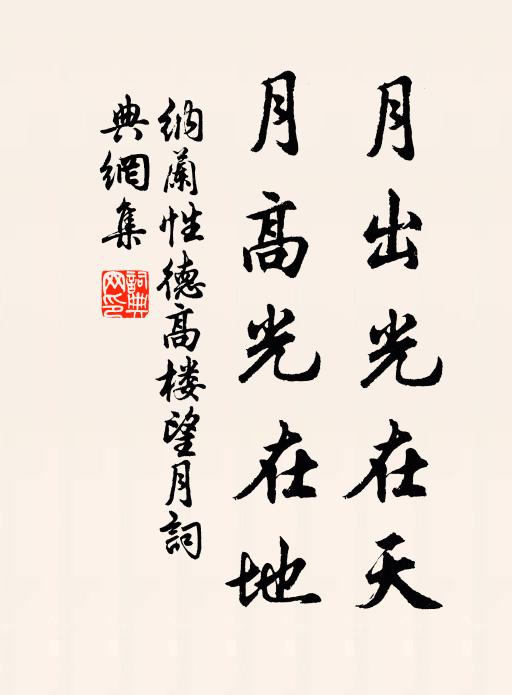 月出光在天
月高光在地
納蘭性德高楼望月詞
典網集
詞典
网印